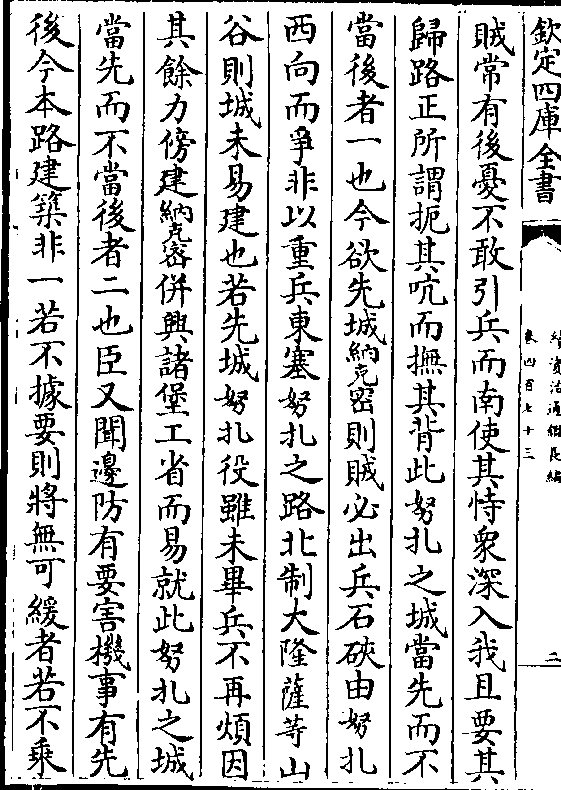 欽定四庫全書
續資治通鑑長編
卷四百七十三
二
賊常有後憂不敢引兵而南使其恃衆深入我且要其
歸路正所謂扼其吭而撫其背此努扎之城當先而不
當後者一也今欲先城納克密則賊必出兵石硤由努扎
西向而爭非以重兵東塞努扎之路北制大隆薩等山
谷則城未易建也若先城努扎役雖未畢兵不再煩因
其餘力傍建納克密併興諸堡工省而易就此努扎之城
當先而不當後者二也臣又聞邊防有要害機事有先
後今本路建築非一若不據要則將無可緩者若不乘